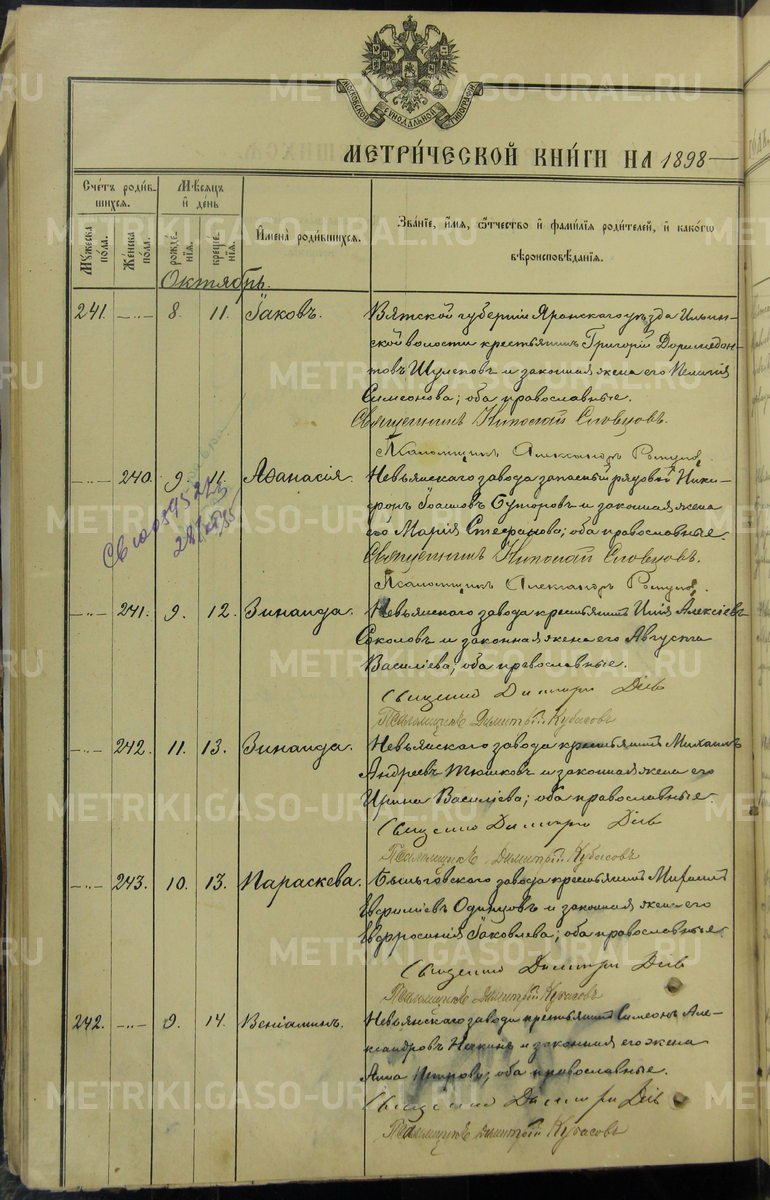 МОСКОВСКОЙ СѴНОДАЛЬНОЙ ТИПОГРАФІИ
МЕТРИ́ЧЕСКОЙ КНИ́ГИ НА 1898
Счетъ роди́вшихся.
Мѣсяцъ и день
Имена̀ роди́вшихся.
Зва́ніе, и́мя, ѻ҆́тчество и фами́лія роди́телей, и како́гѡ вѣроисповѣ́данія.
Му́жеска по́ла.
Же́нска по́ла.
рожде́нія.
креще́нія.
Октябрь.
241. —„— 8. 11. Іаковъ. Вятской губерніи Яранскаго уѣзда Ильин-
ской волости крестьянинъ Григорій Доримедон-
товъ Шулеповъ и законная жена его Пелагія
Симеонова; оба православные.
Священникъ Николай Словцовъ.
Псаломщикъ Александръ
—„— 240. 9. 11. Аѳанасія. Невьянскаго завода запасный рядовой Ники-
форъ Іоанновъ Буторовъ и законная жена
его Марія Стефанова; оба православные.
Священникъ Николай Словцовъ.
Псаломщикъ Александръ
—„— 241. 9. 12. Зинаида. Невьянскаго завода крестьянинъ Илія Алексіевъ
Соколовъ и законная жена его Августа
Василіева; оба православные.
Священно Димитрій
Псаломщикъ Димитрій Кубасовъ
—„— 242. 11. 13. Зинаида. Невьянскаго завода крестьянинъ Михаилъ
Андреевъ Тюшковъ и законная жена его
Ирина Василіева; оба православные.
Священно Димитрій
Псаломщикъ Димитрій Кубасовъ
—„— 243. 10. 13. Параскева. Быньговскаго завода крестьянинъ
Евфиміевъ Одинцовъ и законная жена его
Евфросинія Іаковлева; оба православные.
Священно Димитрій
Псаломщикъ Димитрій Кубасовъ
242. —„— 9. 14. Веніаминъ. Невьянскаго завода крестьянинъ Симеонъ Але-
ксандровъ и законная его жена
Анна Петрова; оба православные.
Священно Димитрій
Псаломщикъ Димитрій Кубасовъ
METRIKI.GASO-URAL.RU